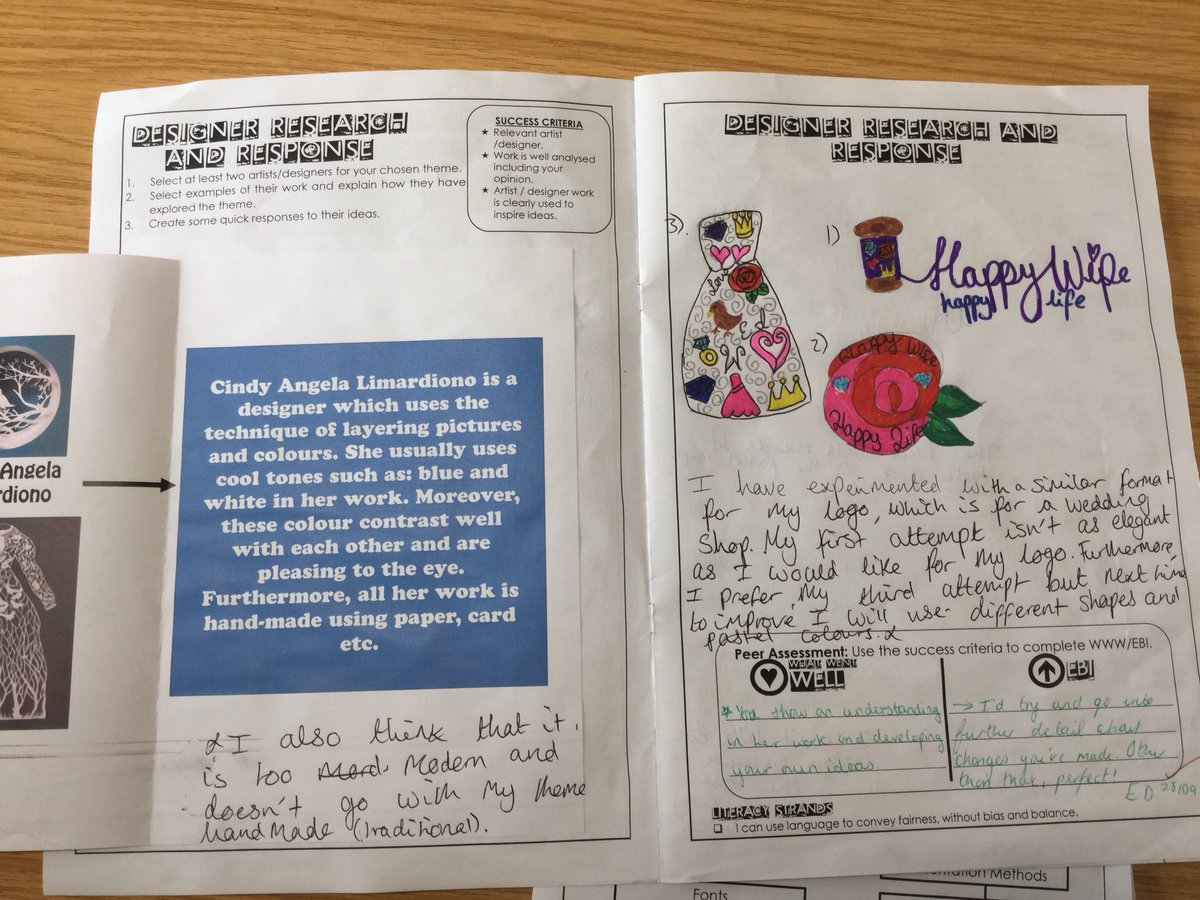 DESIGNER RESEARCH
AND RESPONSE
1. Select at least two artists/designers for your chosen theme.
2. Select examples of their work and explain how they have
explored the theme.
3. Create some quick responses to their ideas.
SUCCESS CRITERIA
★ Relevant artist
/designer.
★ Work is well analysed
including your
opinion.
★ Artist / designer work
is clearly used to
inspire ideas.
Angela
rdiono
Cindy Angela Limardiono is a
designer which uses the
technique of layering pictures
and colours. She usually uses
cool tones such as: blue and
white in her work. Moreover,
these colour contrast well
with each other and are
pleasing to the eye.
Furthermore, all her work is
hand-made using paper, card
etc.
I also think that it
is too Modern and
doesn't go with My theme
handMade (Traditional).
DESIGNER RESEARCH AND
RESPONSE
3).
Love
W Ed
1)
Happy Wife
happy life
2)
Happy Wife
Happy Life
I have experimented with a similar format
for My logo, which is for a wedding
Shop. My first attempt isn't as elegant
as I would like for My logo. Furthermore,
I prefer My third attempt but next time
to improve I will use different shapes and
pastel colours.
Peer Assessment: Use the success criteria to complete WWW/EBI.
WHAT WENT
WELL
EBI
* You show an understanding
in her work and developing
your own ideas
→ I'd try and go into
further detail about
changes you've made Other
than that, perfect!
ED 28/09
LITERACY STRANDS
❑ I can use language to convey fairness, without bias and balance.
Fonts
entation Methods